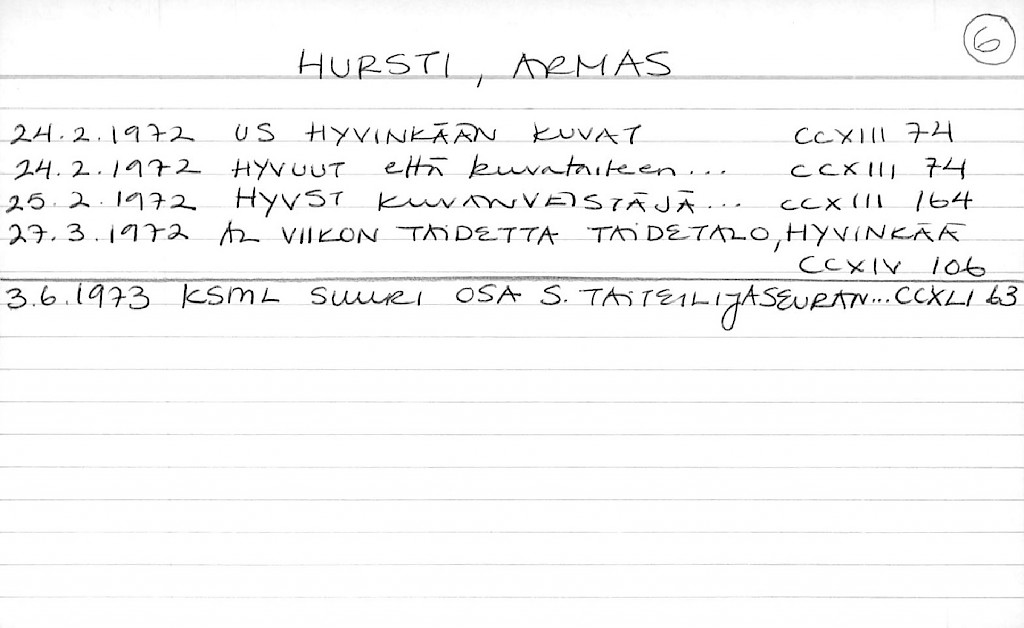 6
HURSTI, ARMAS
24.2.1972 US HYVINKÄÄN KUVAT CCXIII 74
24.2.1972 HYVUUT että kuvataiteen... CCXIII 74
25.2.1972 HYVST KUVANVEISTÄJÄ... CCXIII 164
27.3.1972 AL VIIKON TAIDETTA TAIDETALO, HYVINKÄÄ
CCXIV 106
3.6.1973 KSML SUURI OSA S. TAITEILIJASEURAN... CCXLI 63